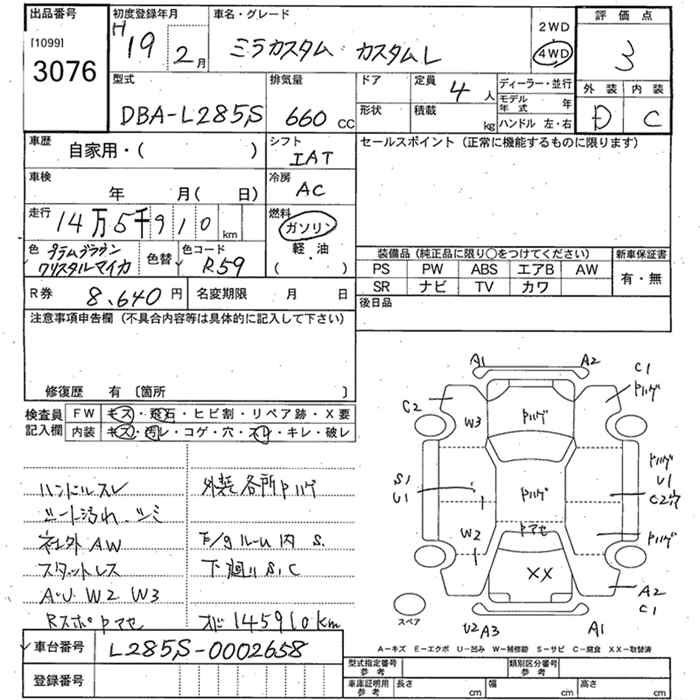 出品番号
[1099]
3076
初度登録年月
H19 2月
車名・グレード
ミラカスタム カスタムL
2WD
4WD
評価点
3
外装 内装
D C
型式
DBA-L285S
排気量
660 cc
ドア
形状
定員 4 人
積載 kg
ディーラー・並行
モデル年式 年
ハンドル 左・右
車歴
自家用・( )
シフト
IAT
セールスポイント(正常に機能するものに限ります)
車検
年 月( 日)
冷房
AC
走行
14万5千910 km
燃料
ガソリン
軽・油
( )
色
プラムブラウン
クリスタルマイカ
色替
色コード
R59
装備品(純正品に限り○をつけてください)
新車保証書
PS PW ABS エアB AW
SR ナビ TV カワ
有・無
R券 8,640 円
名変期限 月 日
後日品
注意事項申告欄(不具合内容等は具体的に記入して下さい)
修復歴 有〔箇所 〕
検査員記入欄
FW キズ・飛石・ヒビ割・リペア跡・X要
内装 キズ・汚レ・コゲ・穴・スレ・キレ・破レ
ハンドルスレ
シート汚れ、シミ
社外AW
スタットレス
A・U W2 W3
Rスポ トアセ
外装各所トハゲ
F/gルーム内 S.
下廻り S,C
オド145910km
A1 A2
C1
トハゲ
C2
W3
トハゲ
S1
U1
トハゲ
トハゲ
U1
C2穴
トハゲ
W2
トアセ
XX
A2
C1
スペア
U2 A3
A1
A-キズ E-エクボ U-凹み W-補修跡 S-サビ C-腐食 XX-取替済
車台番号
L285S-0002658
登録番号
型式指定番号 参考
類別区分番号 参考
車庫証明用 参考
長さ cm
幅 cm
高さ cm